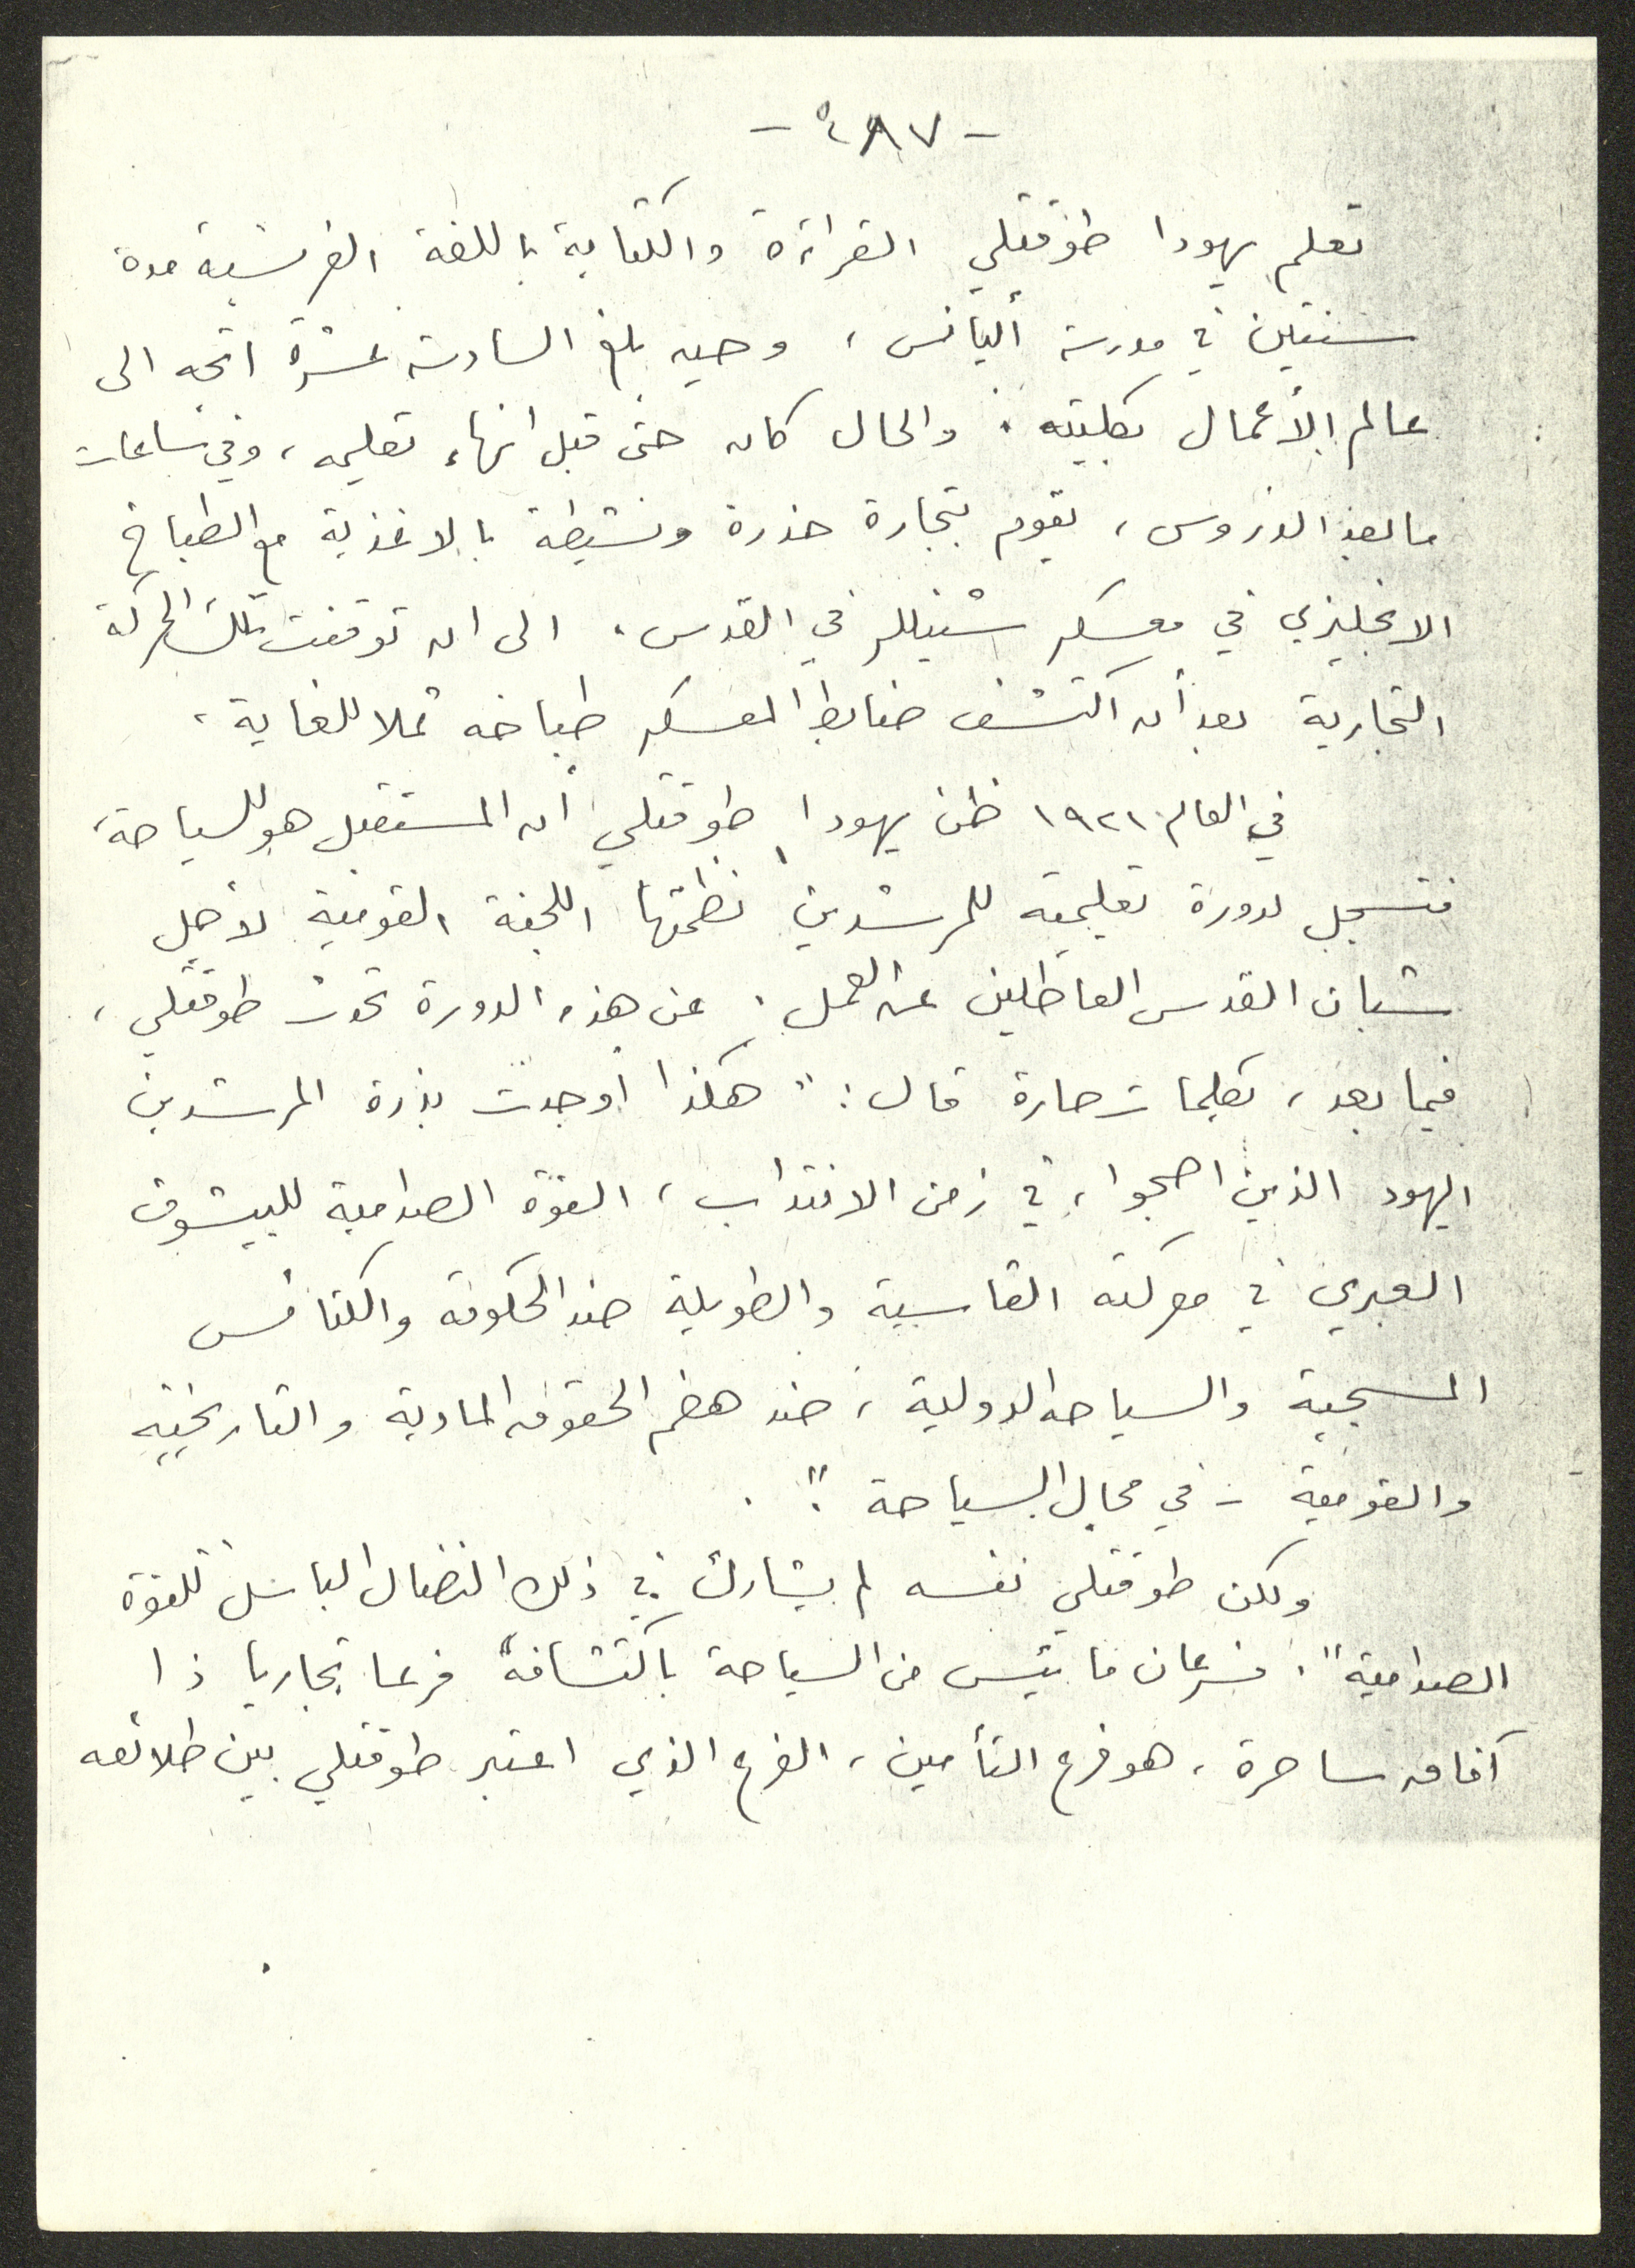 - ٤٨٧ -
تعلم يهودا طوقتلي القراءة والكتابة باللغة الفرنسية مدة
سنتين في مدرسة أليانس، وحين بلغ السادسة عشرة اتجه الى
عالم الأعمال بكليته. والحال كان حتى قبل انهاء تعليمه، وفي ساعات
ما بعد الدروس، يقوم بتجارة حذرة ونشيطة بالاغذية مع الطباخ
الانجليزي في معسكر شنيللر في القدس. الى ان توقفت تلك الحركة
التجارية بعد أن اكتشف ضابط المعسكر طباخه ثملا للغاية.
في العام ١٩٢١ ظن يهودا طوقتلي أن المستقبل هو للسياحة،
فتسجل لدورة تعليمية للمرشدين نظمتها اللجنة القومية لأجل
شبان القدس العاطلين عن العمل. عن هذه الدورة تحدث طوقتلي،
فيما بعد، بكلمات حارة قال: "هكذا أوجدت بذرة المرشدين
اليهود الذين اصبحوا، في زمن الانتداب، القوة الصدامية للييشوف
العبري في معركته القاسية والطويلة ضد الحكومة والكنائس
المسيحية والسياحة الدولية، ضد هضم الحقوق المادية والتاريخية
والقومية - في مجال السياحة".
ولكن طوقتلي نفسه لم يشارك في ذلك النضال الباسل "للقوة
الصدامية". فسرعان ما يئس من السياحة باكتشافه فرعا تجاريا ذا
آفاق ساحرة، هو فرع التأمين، الفرع الذي اعتبر طوقتلي بين طلائعه